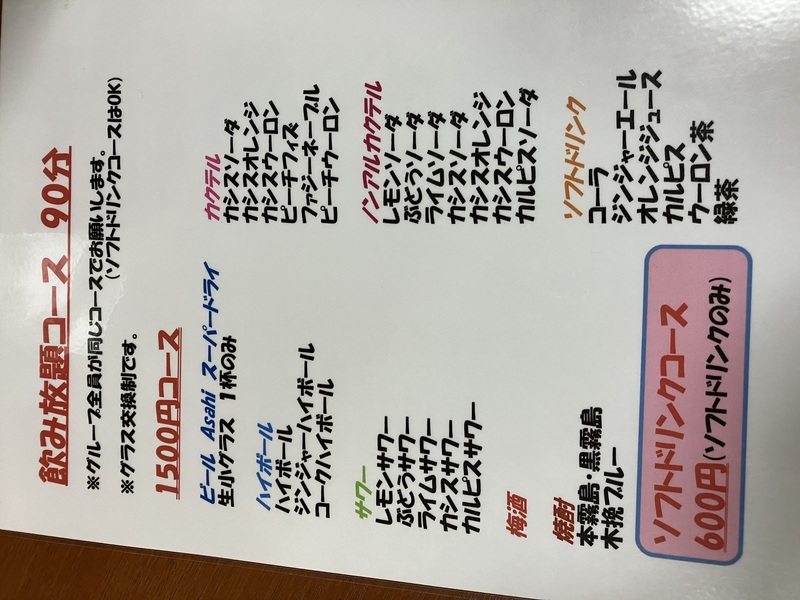 飲み放題コース 90分
※グループ全員が同じコースでお願いします。
(ソフトドリンクコースはOK)
※グラス交換制です。
1500円コース
ビール Asahi スーパードライ
生小グラス 1杯のみ
ハイボール
ハイボール
ジンジャーハイボール
コークハイボール
サワー
レモンサワー
ぶどうサワー
ライムサワー
カシスサワー
カルピスサワー
梅酒
焼酎
本霧島・黒霧島
木挽ブルー
カクテル
カシスソーダ
カシスオレンジ
カシスウーロン
ピーチフィズ
ファジーネーブル
ピーチウーロン
ノンアルカクテル
レモンソーダ
ぶどうソーダ
ライムソーダ
カシスソーダ
カシスオレンジ
カシスウーロン
カルピスソーダ
ソフトドリンク
コーラ
ジンジャーエール
オレンジジュース
カルピス
ウーロン茶
緑茶
ソフトドリンクコース
600円(ソフトドリンクのみ)